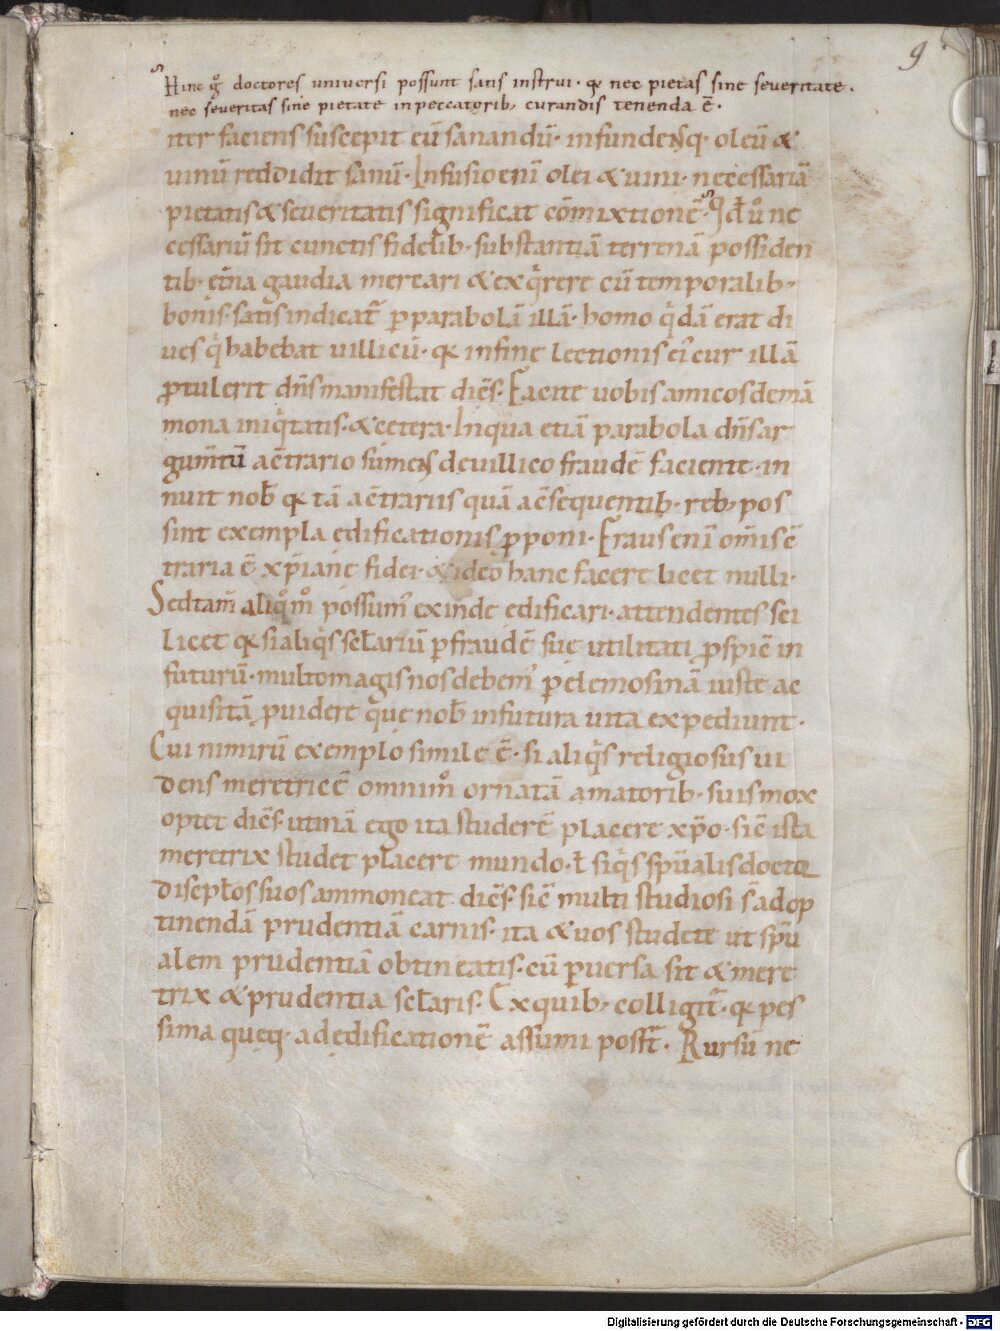 9
Hinc gͦ doctores universi possunt satis instrui · qđ nec pietas sine severitate ·
nec severitas sine pietate in peccatorib; curandis tenenda ē ·
iter faciens suscepit eū sanandū · infundensq; oleū &
uinū reddidit sanū · Infusio enī olei & uini · necessariā
pietatis & seueritatis significat cōmixtionē · Qd uͦ ne
cessariū sit cunctis fidelib; substantiā terrenā possiden
tib; etna gaudia mercari & exqͥrere cū temporalib;
bonis · satis indicat᷑ p parabolā illā · homo qͥdā erat di
ues qͥ habebat uillicū · qđ in fine lectionis ei᷒ cur illā
ptulerit dn̄s manifestat dicēs · Facite uobis amicos de mā
mona iniqͥtatis · & cetera · In qua etiā parabola dn̄s ar
gum̄tū a c̄trario sumens de uillico fraudē faciente · in
nuit nob̄ qđ tā a c̄trariis quā a c̄sequentib; reb; pos
sint exempla edificationis pponi · Fraus enī om̄is c̄
traria ē xp̄iane fidei · & ideo hanc facere licet nulli ·
Sed tam̄ aliqͦmͦ possum᷒ exinde edificari · attendentes sci
licet qđ si aliqͥs sc̄lariū p fraudē sue utilitati pspic̄ in
futurū · multo magis nos debem᷒ p elemosinā iuste ac
quisitā puidere que nob̄ in futura uita expediunt ·
Cui nimirū exemplo simile ē · si aliqͥs religiosus ui
dens meretricē omnimͦ ornatā amatorib; suis mox
optet dicēs · utinā ego ita studerē placere xp̄o · sic̄ ista
meretrix studet placere mundo · ł siqͥs sp̄ualis doctor
discipłos suos ammoneat dicēs · sic̄ multi studiosi s̄ ad op
tinendā prudentiā carnis · ita & uos studete ut sp̄u
alem prudentiā obtineatis · cū puersa sit & mere
trix & prudentia sc̄laris · Ex quib; colligit᷑ · qđ pes
sima queq; ad edificationē assumi poss̄t · Rursū ne
Digitalisierung gefördert durch die Deutsche Forschungsgemeinschaft - DFG